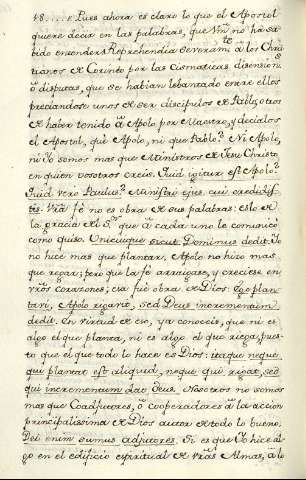 18.... Pues ahora es claro lo que el Apostol
quiere decir en las palabras, que Vm. no ha sa-
bido entender: Reprehendia Severamte. a los Chris
tianos de Corinto por las Cismaticas disensions.
ò disputas, que se habian lebantado entre ellos
preciandose unos de ser discipulos de Pablo, otros
de haber tenido à Apolo por Maestro, y decialos
el Apostol, què Apolo, ni que Pablo? Ni Apolo,
ni Yo somos mas que Ministros de Jesu Christo
en quien vosotros creeis. Quid igitur est Apolo?
Quid vero Paulus? Ministri ejus, cui credidis-
tis. Vra. fè no es obra de sus palabras: esto de
la gracia del Sr. que à cada uno le comunicò
como quiso. Unicuique sicut Dominus dedit. Yo
no hice mas que plantar, Apolo no hizo mas
que regar; pero que la fè arraigase, y creciese en
vros. corazones; esa fuè obra de Dios: Ego plan-
tavi, Apolo rigavit, sed Deus incrementum
dedit. En virtud de eso, ya conoceis, que ni es
algo el que planta, ni es algo el que riega, pues-
to que el que todo lo hace es Dios: itaque neque
qui plantat est aliquid, neque qui rigat, sed
qui incrementum dat Deus. Nosotros no somos
mas que Coadjutores, ò cooperadores à la accion
principalissima de Dios autor de todo lo bueno;
Dei enim sumus adjutores. Si es que Yo hice al-
go en el edificio espiritual de vras. Almas, à lo